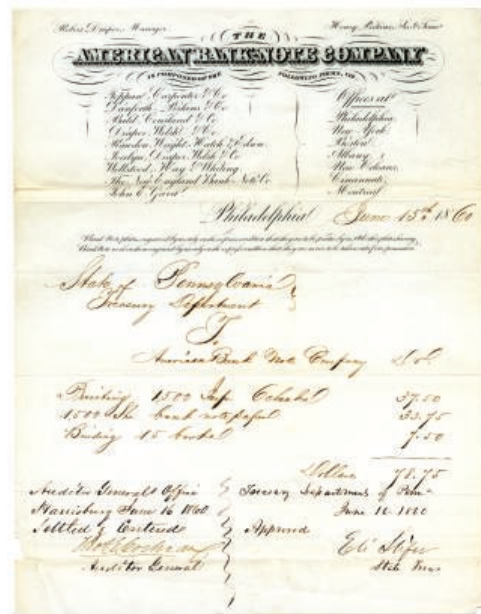 THE
AMERICAN BANK-NOTE COMPANY
IS COMPOSED OF THE FOLLOWING FIRMS, VIZ
Toppan, Carpenter & Co
Danforth, Perkins & Co
Bald, Cousland & Co
Draper, Welsh & Co
Rawdon, Wright, Hatch & Edson
Jocelyn, Draper, Welsh & Co
Wellstood, Hay & Whiting
The New England Bank Note Co
John E. Gavit
Offices at
Philadelphia
New York
Boston
Albany
New Orleans
Cincinnati
Montreal
Philadelphia June 15th 1860
State of Pennsylvania
Treasury Department
To
American Bank Note Company
Printing 1500 37.50
1500 bank note paper 33.75
Binding 15 books 7.50
Dollars 78.75
Auditor Generals Office
Harrisburg June 16 1860
Settled & Entered
Auditor General
Treasury Department of Penna
June 16 1860
Approved
Eli Slifer
State Treas